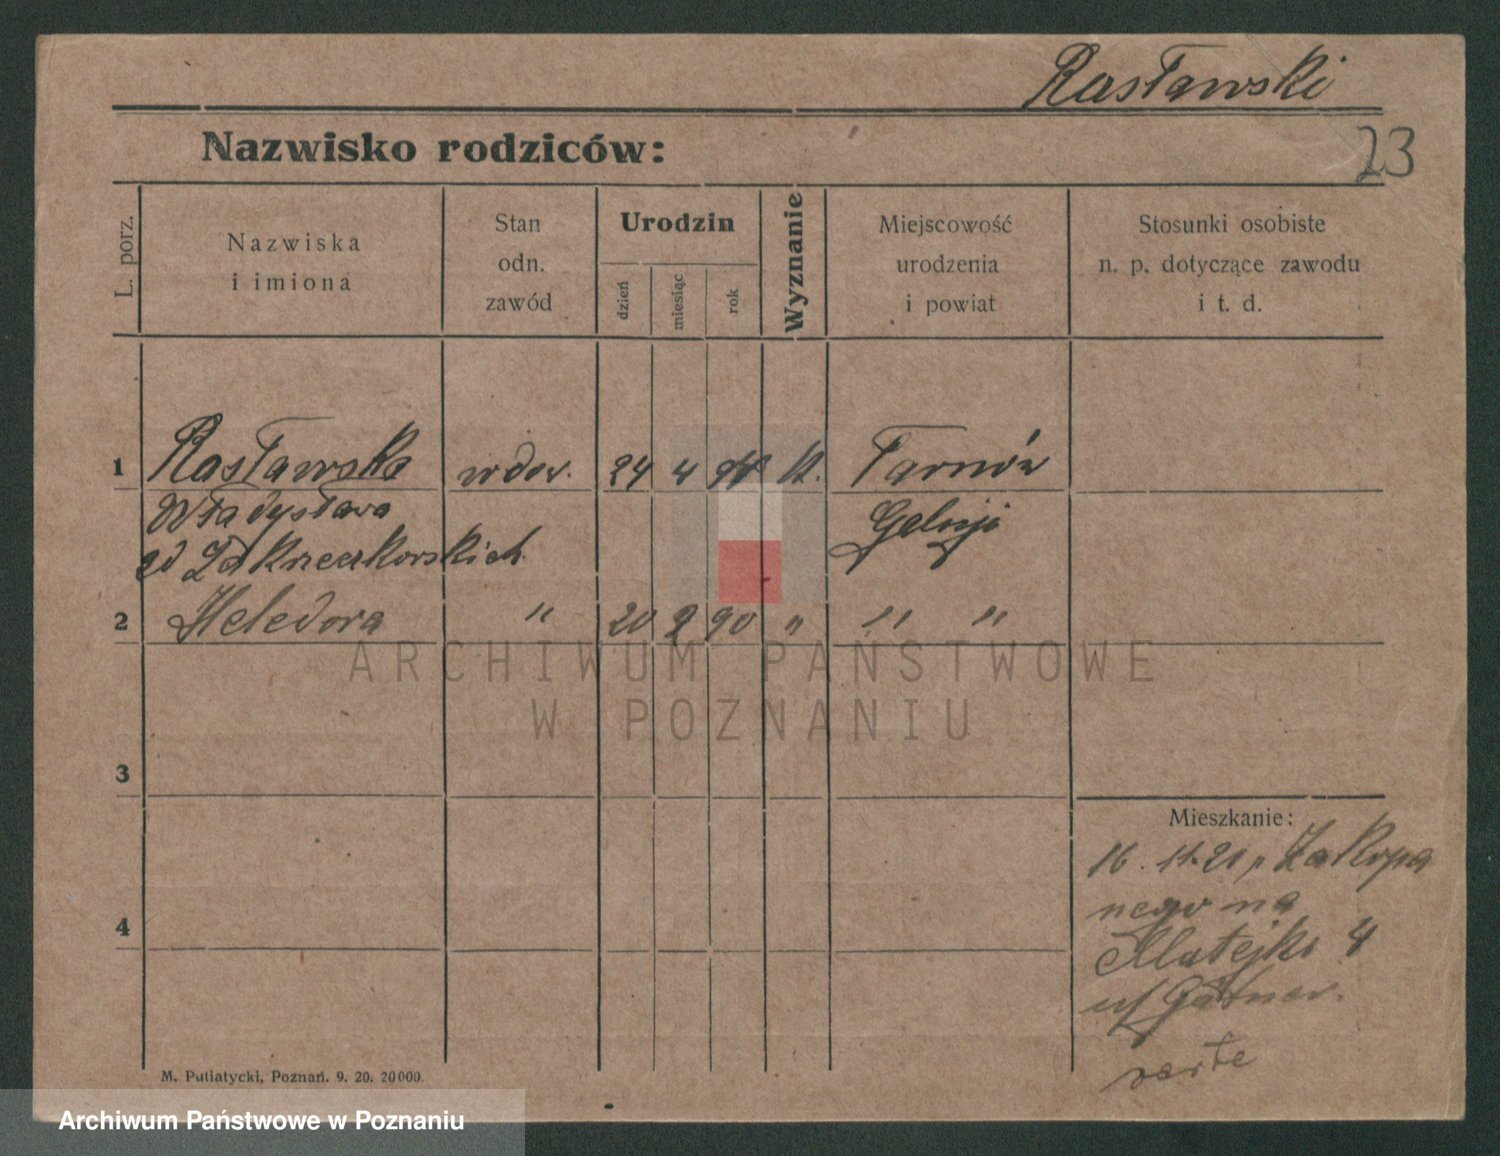 Rasławski
23
Nazwisko rodziców:
L. porz.
Nazwiska
i imiona
Stan
odn.
zawód
Urodzin
dzień
miesiąc
rok
Wyznanie
Miejscowość
urodzenia
i powiat
Stosunki osobiste
n. p. dotyczące zawodu
i t. d.
1 Rasławska wdow. 24 4 kt. Tarnów
Władysława
2 Heledora " 20 2 90 " " "
3
4
Mieszkanie:
16. 11.21, Zakopa
nego na
Matejki 4
ARCHIWUM PAŃSTWOWE
W POZNANIU
M. Putiatycki, Poznań. 9. 20. 20000.
Archiwum Państwowe w Poznaniu